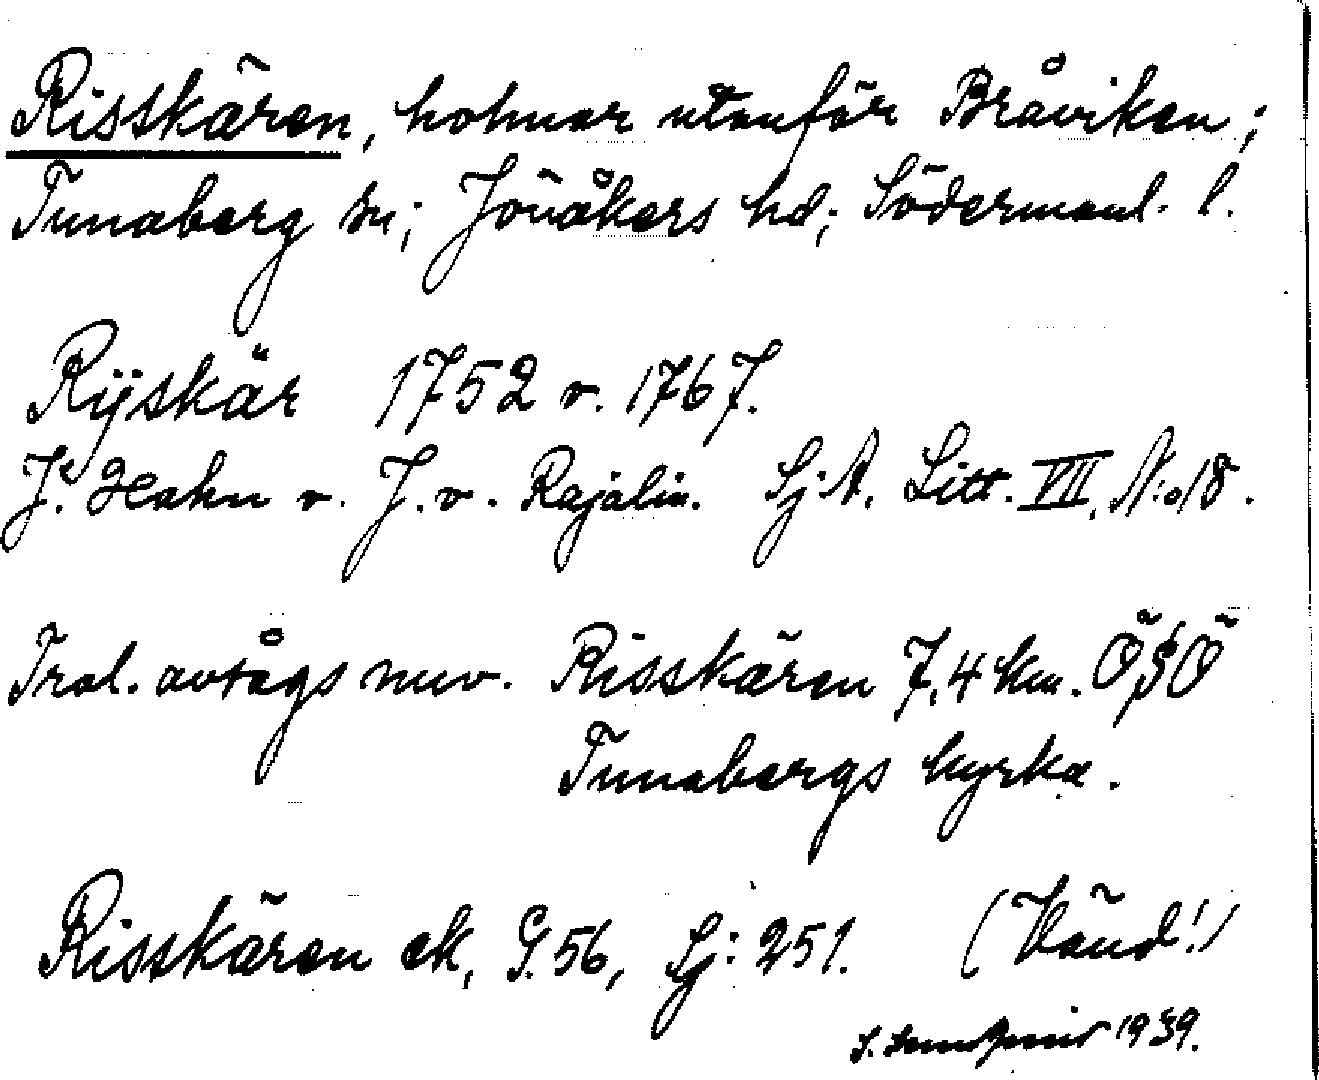 Risskären, holmar utanför Bråviken;
Tunaberg sn; Jönåkers hd; Södermanl. l.
Rÿskär 1752 o. 1767.
J. Hahn o. J. v. Rajalin. Sj.A. Litt. VII, N:o 18.
Trol. avtågs nuv. Risskären 7,4 km. ÖSÖ
Tunabergs kyrka.
Risskären ek, G. 56, Sj: 251. (Vänd!)
1939.